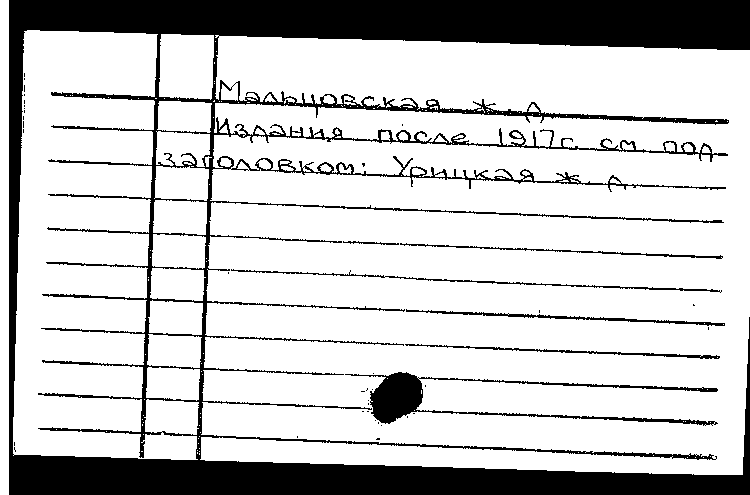 Мальцовская ж. д.
Издания после 1917г. см. под
заголовком: Урицкая ж. д.